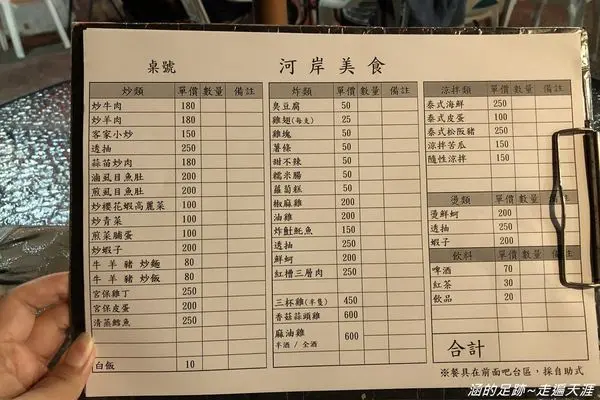 桌號
河岸美食
炒類 單價 數量 備註
炒牛肉 180
炒羊肉 180
客家小炒 150
透抽 250
蒜苗炒肉 180
滷虱目魚肚 200
煎虱目魚肚 200
炒櫻花蝦高麗菜 100
炒青菜 100
煎菜脯蛋 100
炒蝦子 200
牛羊豬炒麵 80
牛羊豬炒飯 80
宮保雞丁 250
宮保皮蛋 200
清蒸鱈魚 250
白飯 10
炸類 單價 數量 備註
臭豆腐 50
雞翅(每支) 25
雞塊 50
薯條 50
甜不辣 50
糯米腸 50
蘿蔔糕 50
椒麻雞 200
油雞 200
炸魟魠魚 150
透抽 250
鮮蚵 200
紅糟三層肉 250
三杯雞(半隻) 450
香菇蒜頭雞 600
麻油雞 600
半酒 / 全酒
涼拌類 單價 數量 備註
泰式海鮮 250
泰式皮蛋 100
泰式松阪豬 250
涼拌苦瓜 150
隨性涼拌 150
燙類 單價 數量 備註
燙鮮蚵 200
透抽 250
蝦子 200
飲料 單價 數量 備註
啤酒 70
紅茶 30
飲品 20
合計
※餐具在前面吧台區，採自助式
涵的足跡~走遍天涯